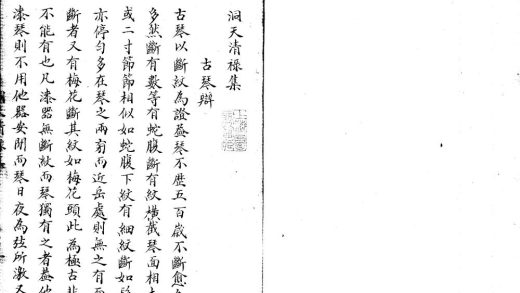 洞天清祿集
古琴辯
古琴以斷紋為證葢琴不歴五百歳不斷愈
多然斷有數等有蛇腹斷有紋橫截琴面相
或二寸節節相似如蛇腹下紋有細紋斷如
亦停勻多在琴之兩旁而近岳處則無之有
斷者又有梅花斷其紋如梅花頭此為極古非
不能有也凡漆器無斷紋而琴獨有之者葢他
漆琴則不用他器安閒而琴日夜為弦所激又